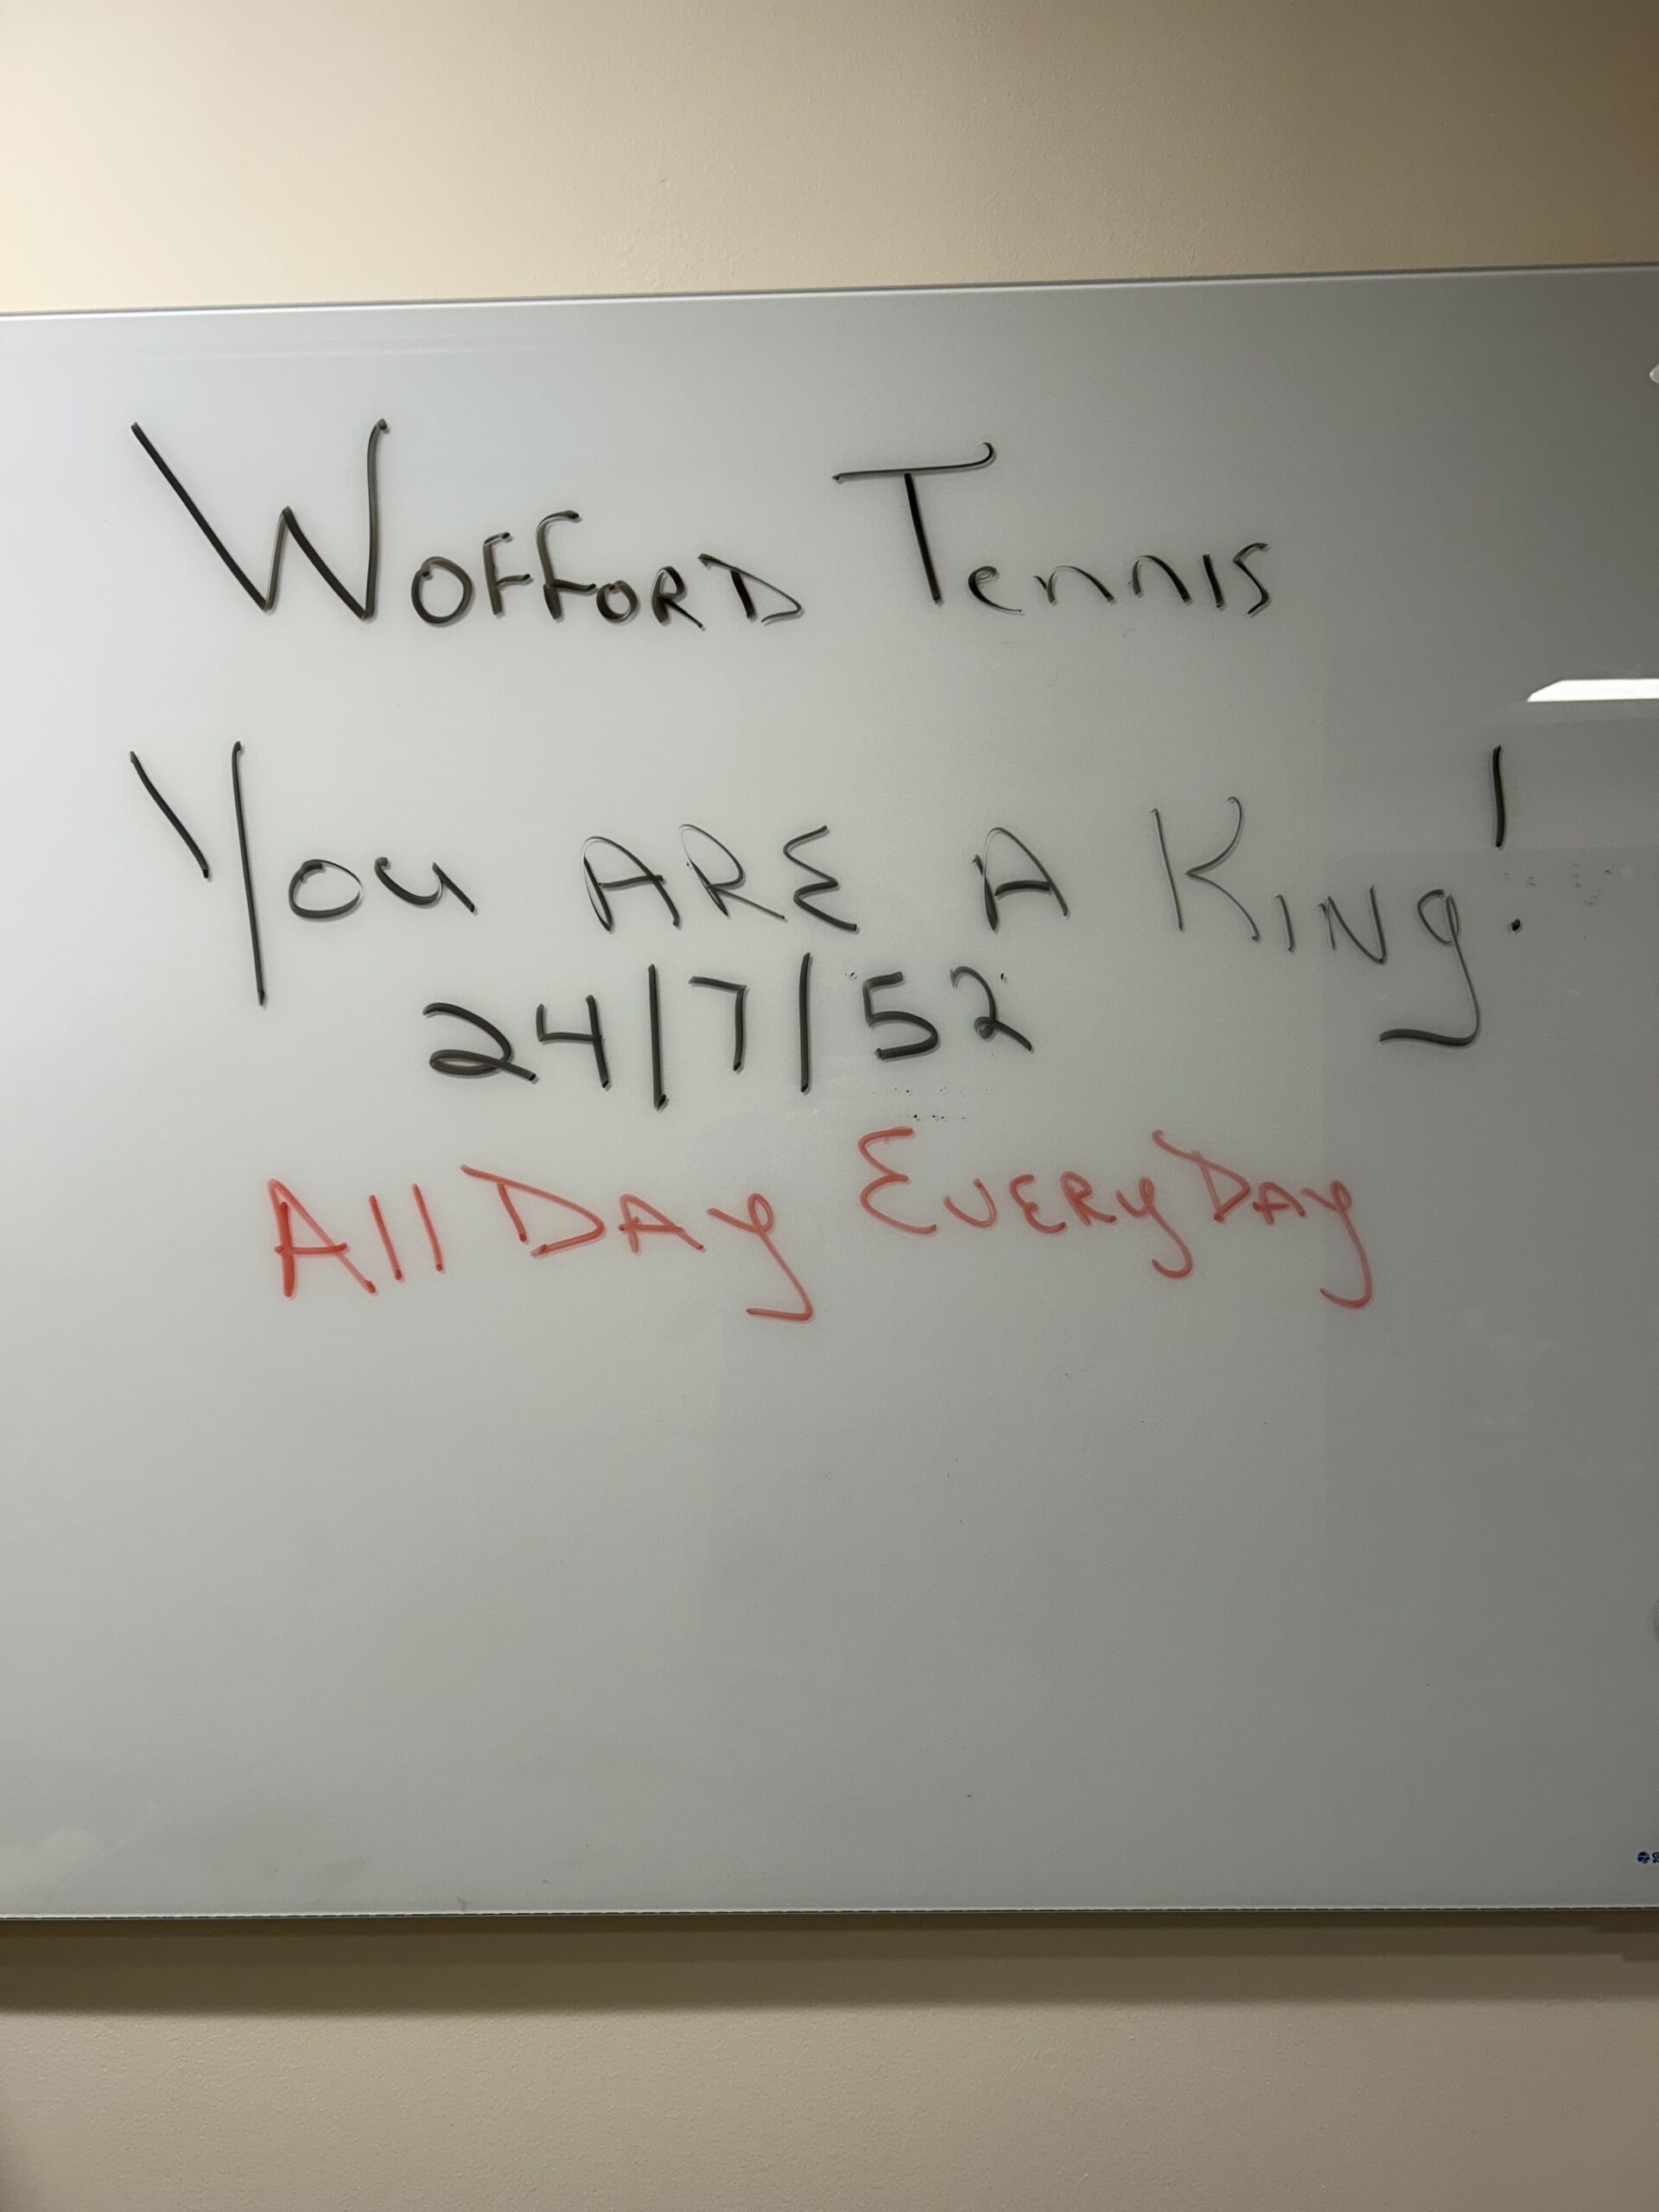 Wofford Tennis
You ARE A King!
24/7/52
All Day EveryDay